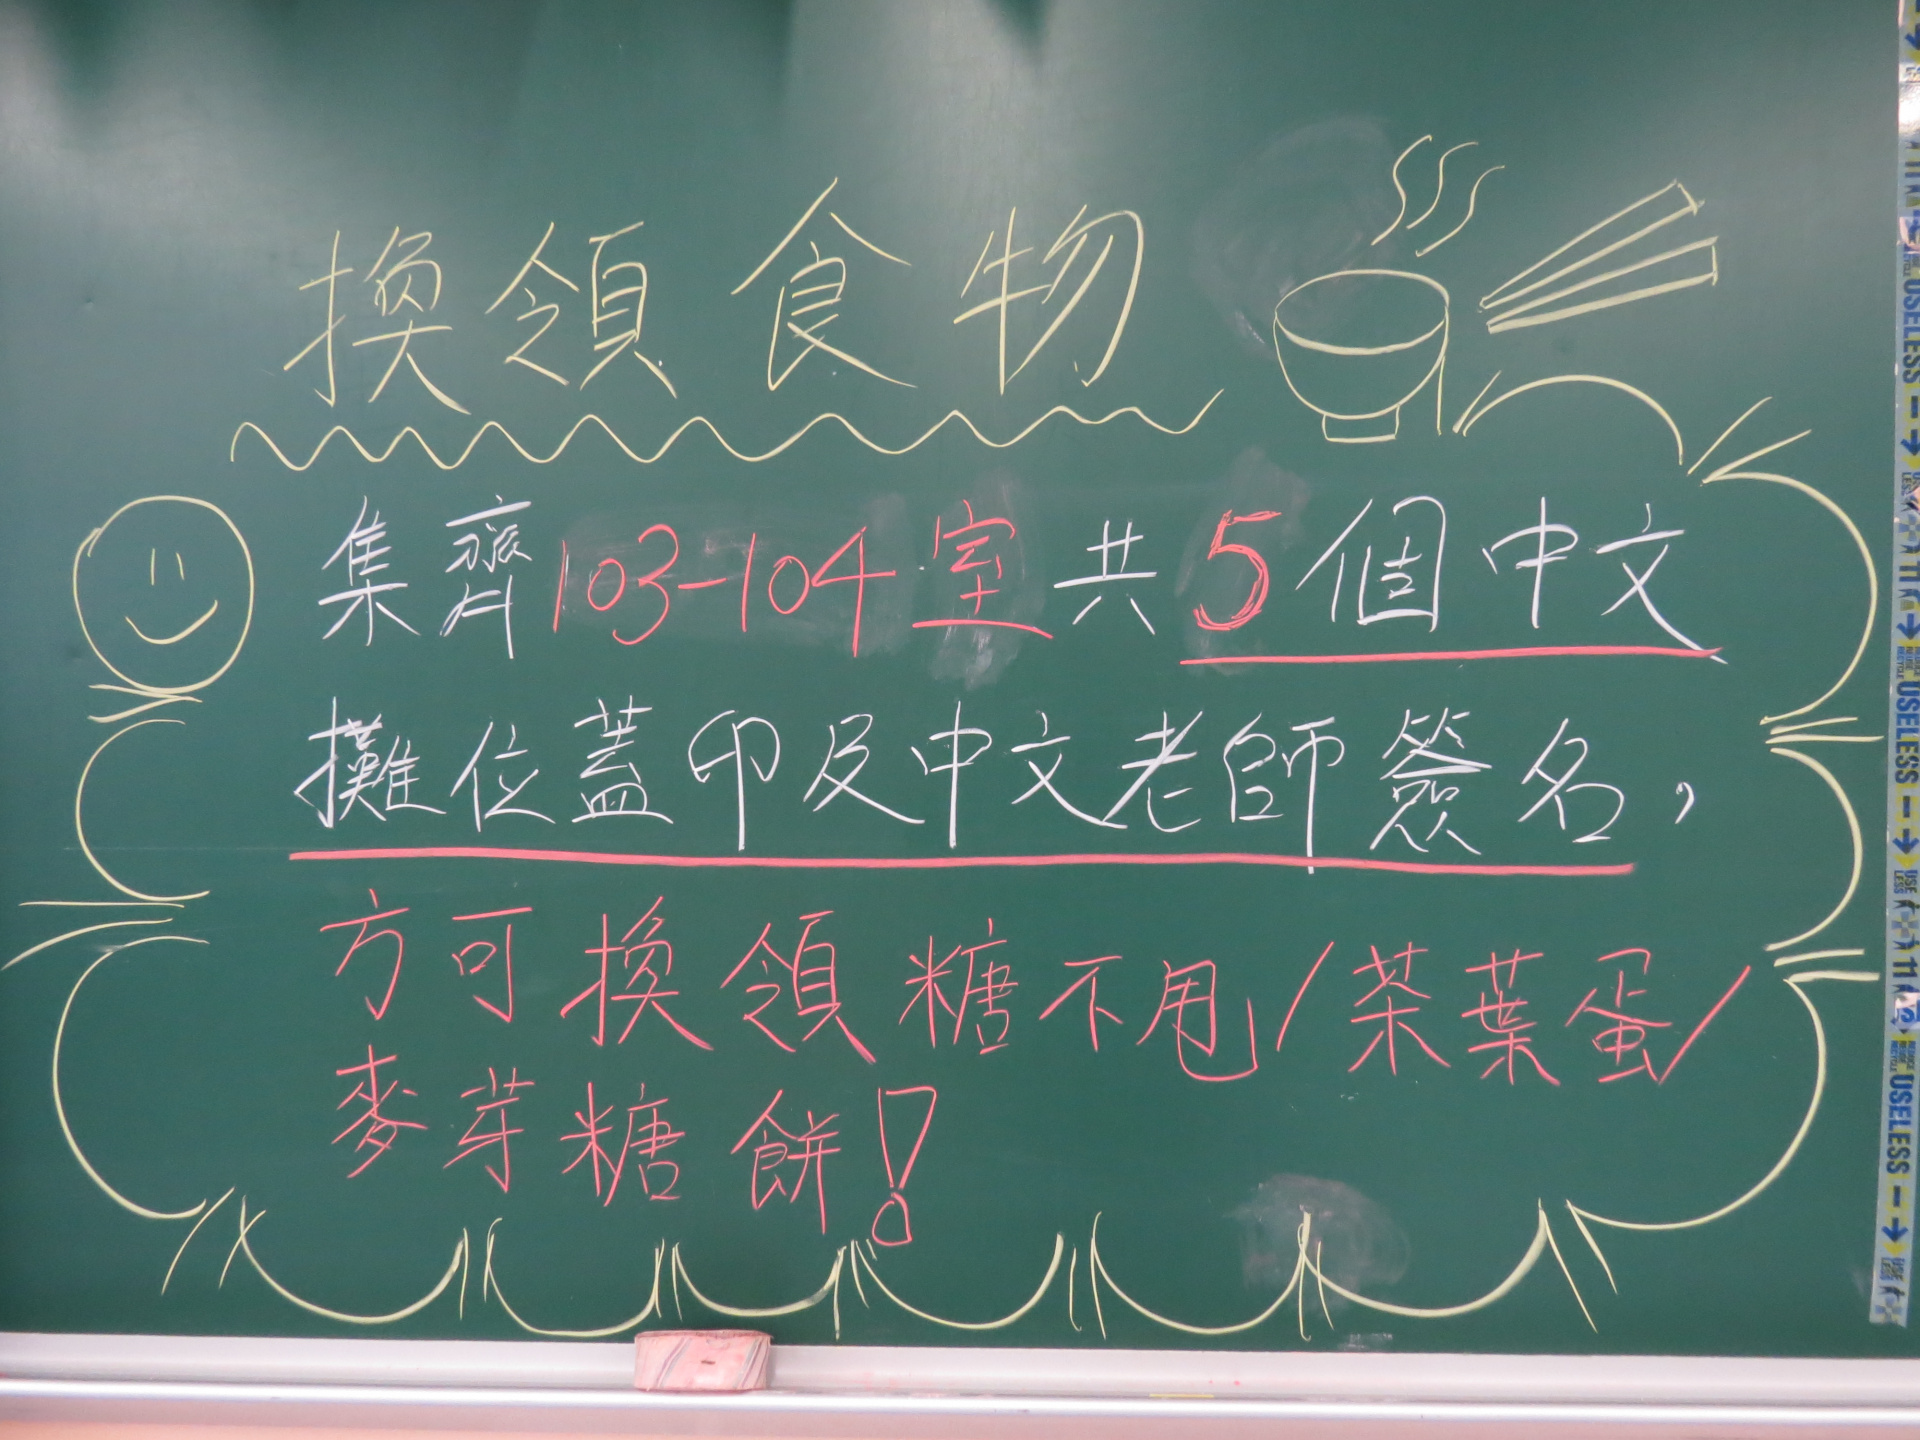 換領食物
集齊103-104室共5個中文
攤位蓋印及中文老師簽名，
方可換領糖不甩/茶葉蛋/
麥芽糖餅！
USELESS
USELESS
USELESS
USELESS